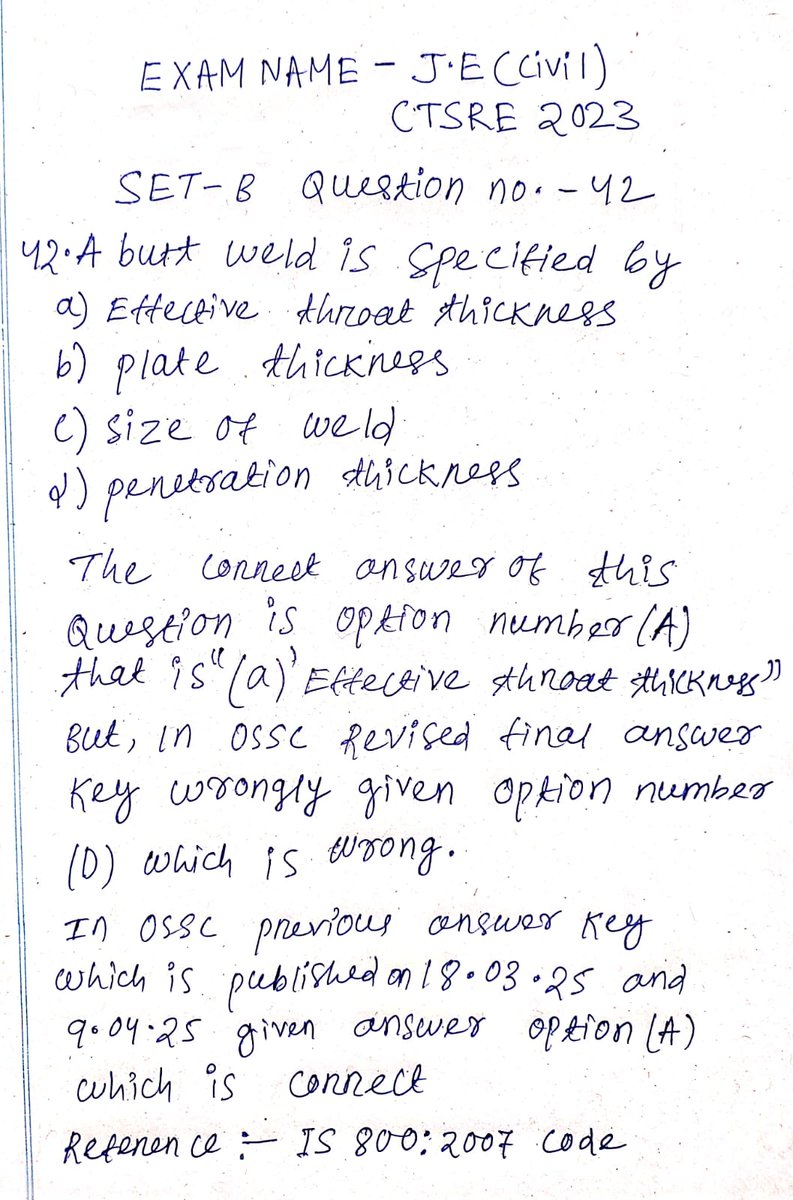 EXAM NAME - J.E (Civil)
CTSRE 2023
SET-B Question no. - 42
42. A butt weld is specified by
a) Effective throat thickness
b) plate thickness
c) size of weld
d) penetration thickness
The correct answer of this
Question is option number (A)
that is "(a) Effective throat thickness"
But, in OSSC Revised final answer
Key wrongly given option number
(D) which is wrong.
In OSSC previous answer key
which is published on 18.03.25 and
9.04.25 given answer option (A)
which is correct
Reference :- IS 800:2007 code